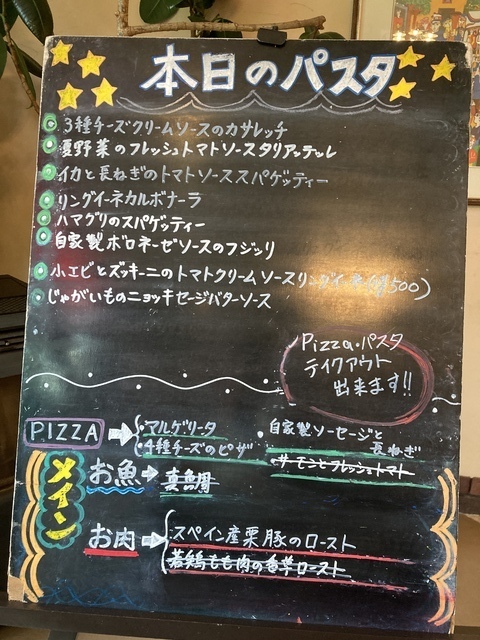 本日のパスタ
3種チーズクリームソースのカサレッチ
夏野菜のフレッシュトマトソースタリアッテッレ
イカと長ねぎのトマトソーススパゲッティー
リングイーネカルボナーラ
ハマグリのスパゲッティー
自家製ボロネーゼソースのフジッリ
小エビとズッキーニのトマトクリームソースリングイーネ
じゃがいものニョッキセージバターソース
Pizza・パスタ
テイクアウト
出来ます!!
PIZZA
・マルゲリータ
・4種チーズのピザ
・自家製ソーセージと
長ねぎ
サーモンとフレッシュトマト
メイン
お魚
真鯛
お肉
・スペイン産栗豚のロースト
若鶏もも肉の香草ロースト